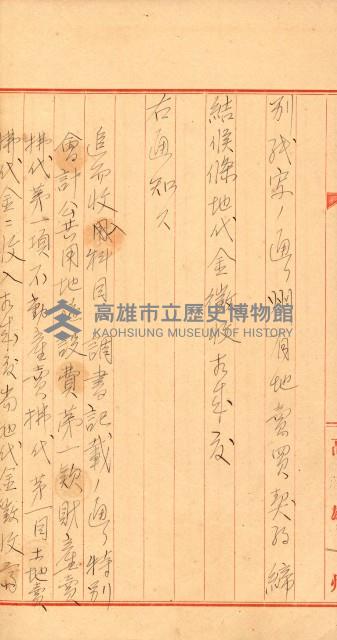 別紙案ノ通州有地賣買契約締
結候條地代金徵收相成度
右通知ス
追而收入科目調書記載ノ通特別
會計公共用地建設費第一款財產賣
拂代第一項不動產賣拂代第一目土地賣
拂代金ニ收入相成度尚地代金徵收
高雄州
高雄市立歷史博物館
KAOHSIUNG MUSEUM OF HISTORY